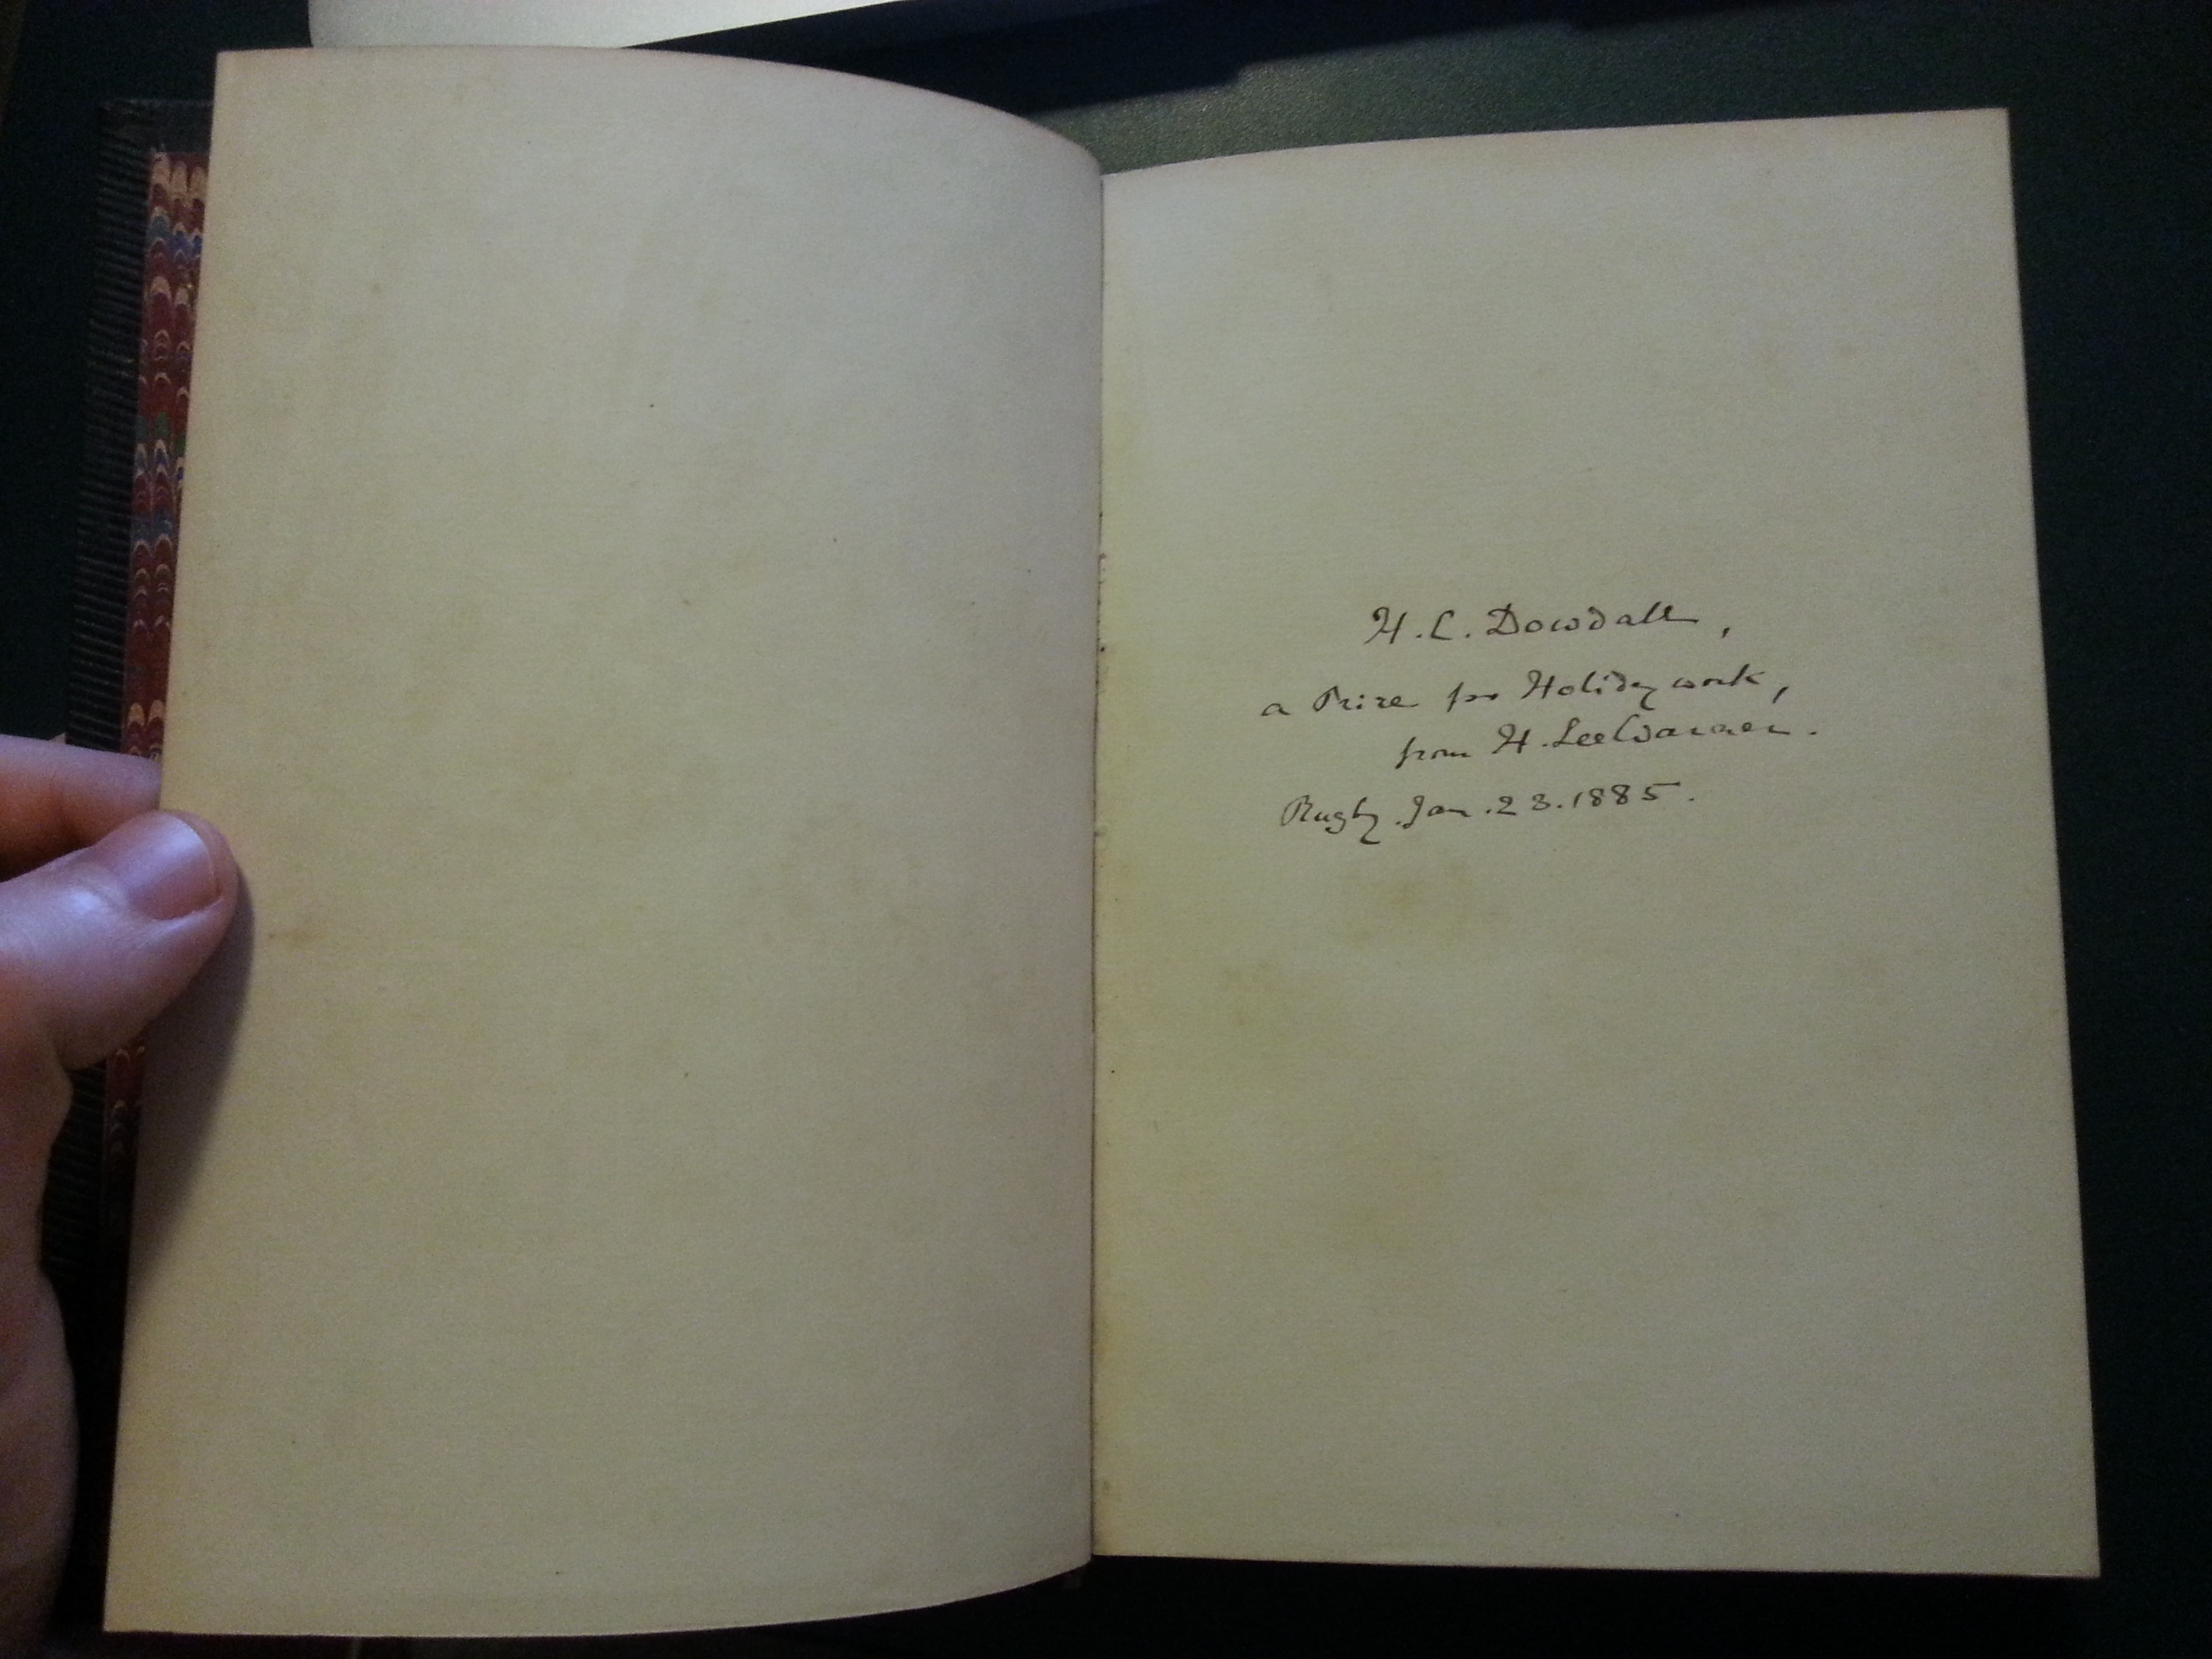 H.C. Dowdall,
a Prize for Holiday work,
from H. Lee Warner.
Rugby. Jan. 23. 1885.